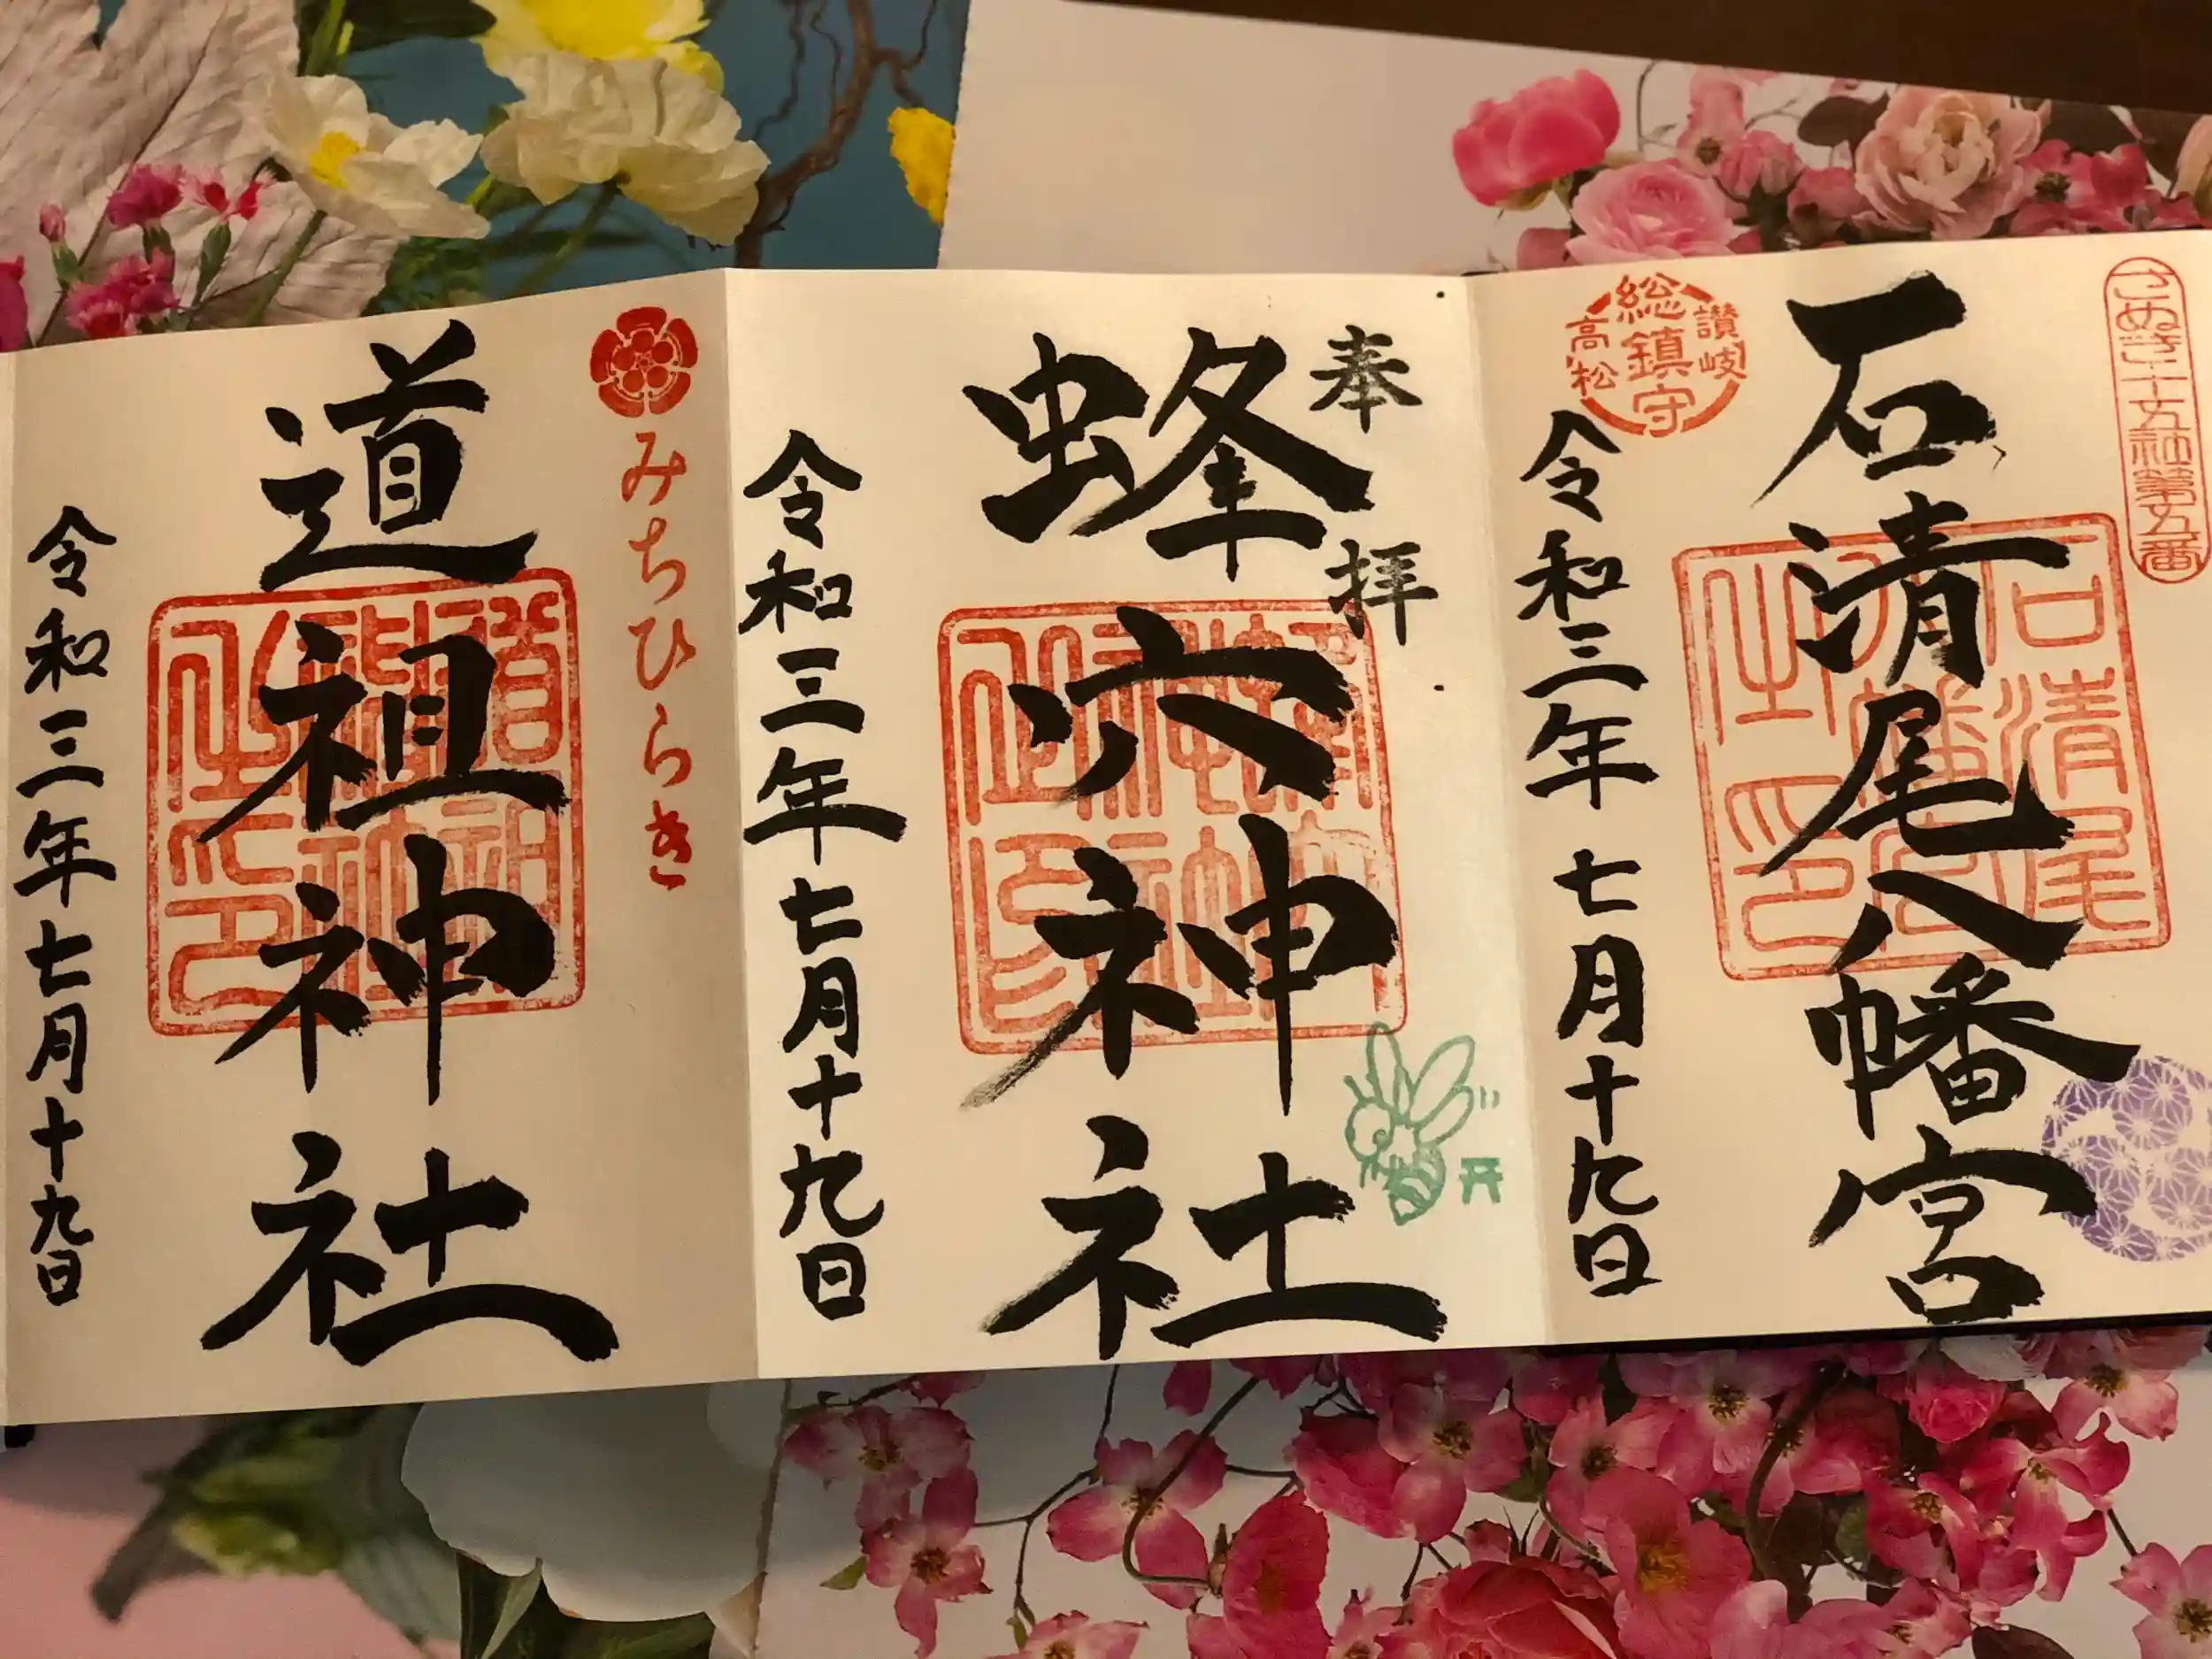 さぬき十五社第五番
石清尾八幡宮
石清尾八幡宮之印
讃岐
総鎮守
高松
令和三年七月十九日
奉拝
蜂穴神社
令和三年七月十九日
みちひらき
道祖神社
令和三年七月十九日